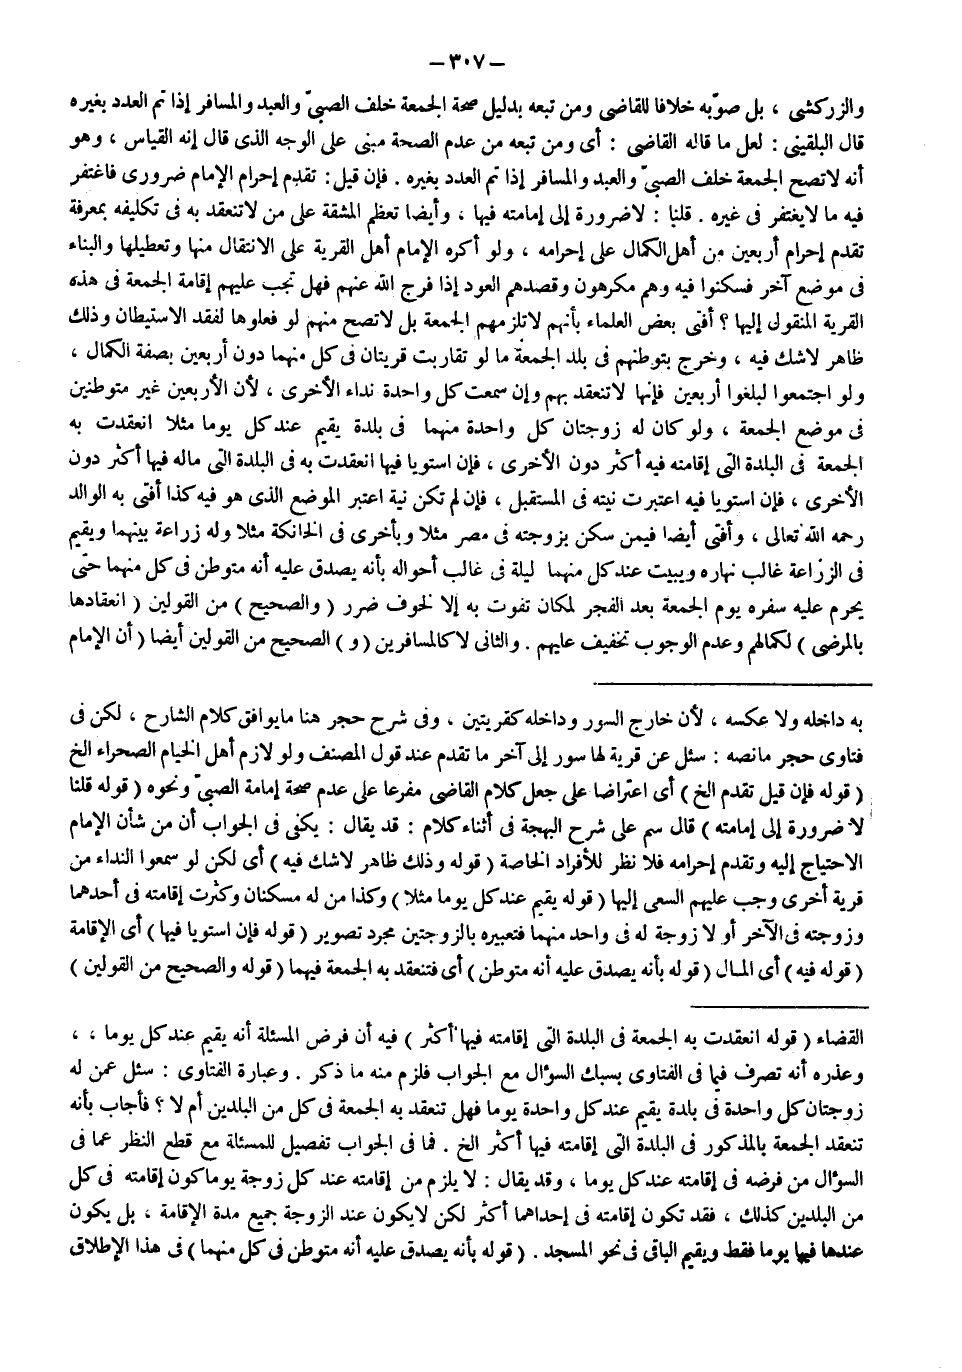 — ٣٠٧ —
والزركشى ، بل صوّبه خلافا للقاضى ومن تبعه بدليل صحة الجمعة خلف الصبىّ والعبد والمسافر إذا تم العدد بغيره
قال البلقينى : لعل ما قاله القاضى : أى ومن تبعه من عدم الصحة مبنى على الوجه الذى قال إنه القياس ، وهو
أنه لاتصح الجمعة خلف الصبىّ والعبد والمسافر إذا تم العدد بغيره . فإن قيل : تقدم إحرام الإمام ضرورى فاغتفر
فيه ما لايغتفر فى غيره . قلنا : لاضرورة إلى إمامته فيها ، وأيضا تعظم المشقة على من لاتنعقد به فى تكليفه بمعرفة
تقدم إحرام أربعين من أهل الكمال على إحرامه ، ولو أكره الإمام أهل القرية على الانتقال منها وتعطيلها والبناء
فى موضع آخر فسكنوا فيه وهم مكرهون وقصدهم العود إذا فرج الله عنهم فهل تجب عليهم إقامة الجمعة فى هذه
القرية المنقول إليها ؟ أفتى بعض العلماء بأنهم لاتلزمهم الجمعة بل لاتصح منهم لو فعلوها لفقد الاستيطان وذلك
ظاهر لاشك فيه ، وخرج بتوطنهم فى بلد الجمعة ما لو تقاربت قريتان فى كل منهما دون أربعين بصفة الكمال ،
ولو اجتمعوا لبلغوا أربعين فإنها لاتنعقد بهم وإن سمعت كل واحدة نداء الأخرى ، لأن الأربعين غير متوطنين
فى موضع الجمعة ، ولو كان له زوجتان كل واحدة منهما فى بلدة يقيم عند كل يوما مثلا انعقدت به
الجمعة فى البلدة التى إقامته فيه أكثر دون الأخرى ، فإن استويا فيها انعقدت به فى البلدة التى ماله فيها أكثر دون
الأخرى ، فإن استويا فيه اعتبرت نيته فى المستقبل ، فإن لم تكن نية اعتبر الموضع الذى هو فيه كذا أفتى به الوالد
رحمه الله تعالى ، وأفتى أيضا فيمن سكن بزوجته فى مصر مثلا وبأخرى فى الخانكة مثلا وله زراعة بينهما ويقيم
فى الزراعة غالب نهاره ويبيت عند كل منهما ليلة فى غالب أحواله بأنه يصدق عليه أنه متوطن فى كل منهما حتى
يحرم عليه سفره يوم الجمعة بعد الفجر لمكان تفوت به إلا لخوف ضرر ( والصحيح ) من القولين ( انعقادها
بالمرضى ) لكمالهم وعدم الوجوب تخفيف عليهم . والثانى لا كالمسافرين ( و ) الصحيح من القولين أيضا ( أن الإمام
به داخله ولا عكسه ، لأن خارج السور وداخله كقريتين ، وفى شرح حجر هنا مايوافق كلام الشارح ، لكن فى
فتاوى حجر مانصه : سئل عن قرية لها سور إلى آخر ما تقدم عند قول المصنف ولو لازم أهل الخيام الصحراء الخ
( قوله فإن قيل تقدم الخ ) أى اعتراضا على جعل كلام القاضى مفرعا على عدم صحة إمامة الصبىّ ونحوه ( قوله قلنا
لا ضرورة إلى إمامته ) قال سم على شرح البهجة فى أثناء كلام : قد يقال : يكفى فى الجواب أن من شأن الإمام
الاحتياج إليه وتقدم إحرامه فلا نظر للأفراد الخاصة ( قوله وذلك ظاهر لاشك فيه ) أى لكن لو سمعوا النداء من
قرية أخرى وجب عليهم السعى إليها ( قوله يقيم عند كل يوما مثلا ) وكذا من له مسكنان وكثرت إقامته فى أحدهما
وزوجته فى الآخر أو لا زوجة له فى واحد منهما فتعبيره بالزوجتين مجرد تصوير ( قوله فإن استويا فيها ) أى الإقامة
( قوله فيه ) أى المال ( قوله بأنه يصدق عليه أنه متوطن ) أى فتنعقد به الجمعة فيهما ( قوله والصحيح من القولين )
القضاء ( قوله انعقدت به الجمعة فى البلدة التى إقامته فيها أكثر ) فيه أن فرض المسئلة أنه يقيم عند كل يوما ، ،
وعذره أنه تصرف فيما فى الفتاوى بسبك السؤال مع الجواب فلزم منه ما ذكر . وعبارة الفتاوى : سئل عمن له
زوجتان كل واحدة فى بلدة يقيم عند كل واحدة يوما فهل تنعقد به الجمعة فى كل من البلدين أم لا ؟ فأجاب بأنه
تنعقد الجمعة بالمذكور فى البلدة التى إقامته فيها أكثر الخ . فما فى الجواب تفصيل للمسئلة مع قطع النظر عما فى
السؤال من فرضه فى إقامته عند كل يوما ، وقد يقال : لا يلزم من إقامته عند كل زوجة يوما كون إقامته فى كل
من البلدين كذلك ، فقد تكون إقامته فى إحداهما أكثر لكن لايكون عند الزوجة جميع مدة الإقامة ، بل يكون
عندها فيها يوما فقط ويقيم الباقى فى نحو المسجد . ( قوله بأنه يصدق عليه أنه متوطن فى كل منهما ) فى هذا الإطلاق